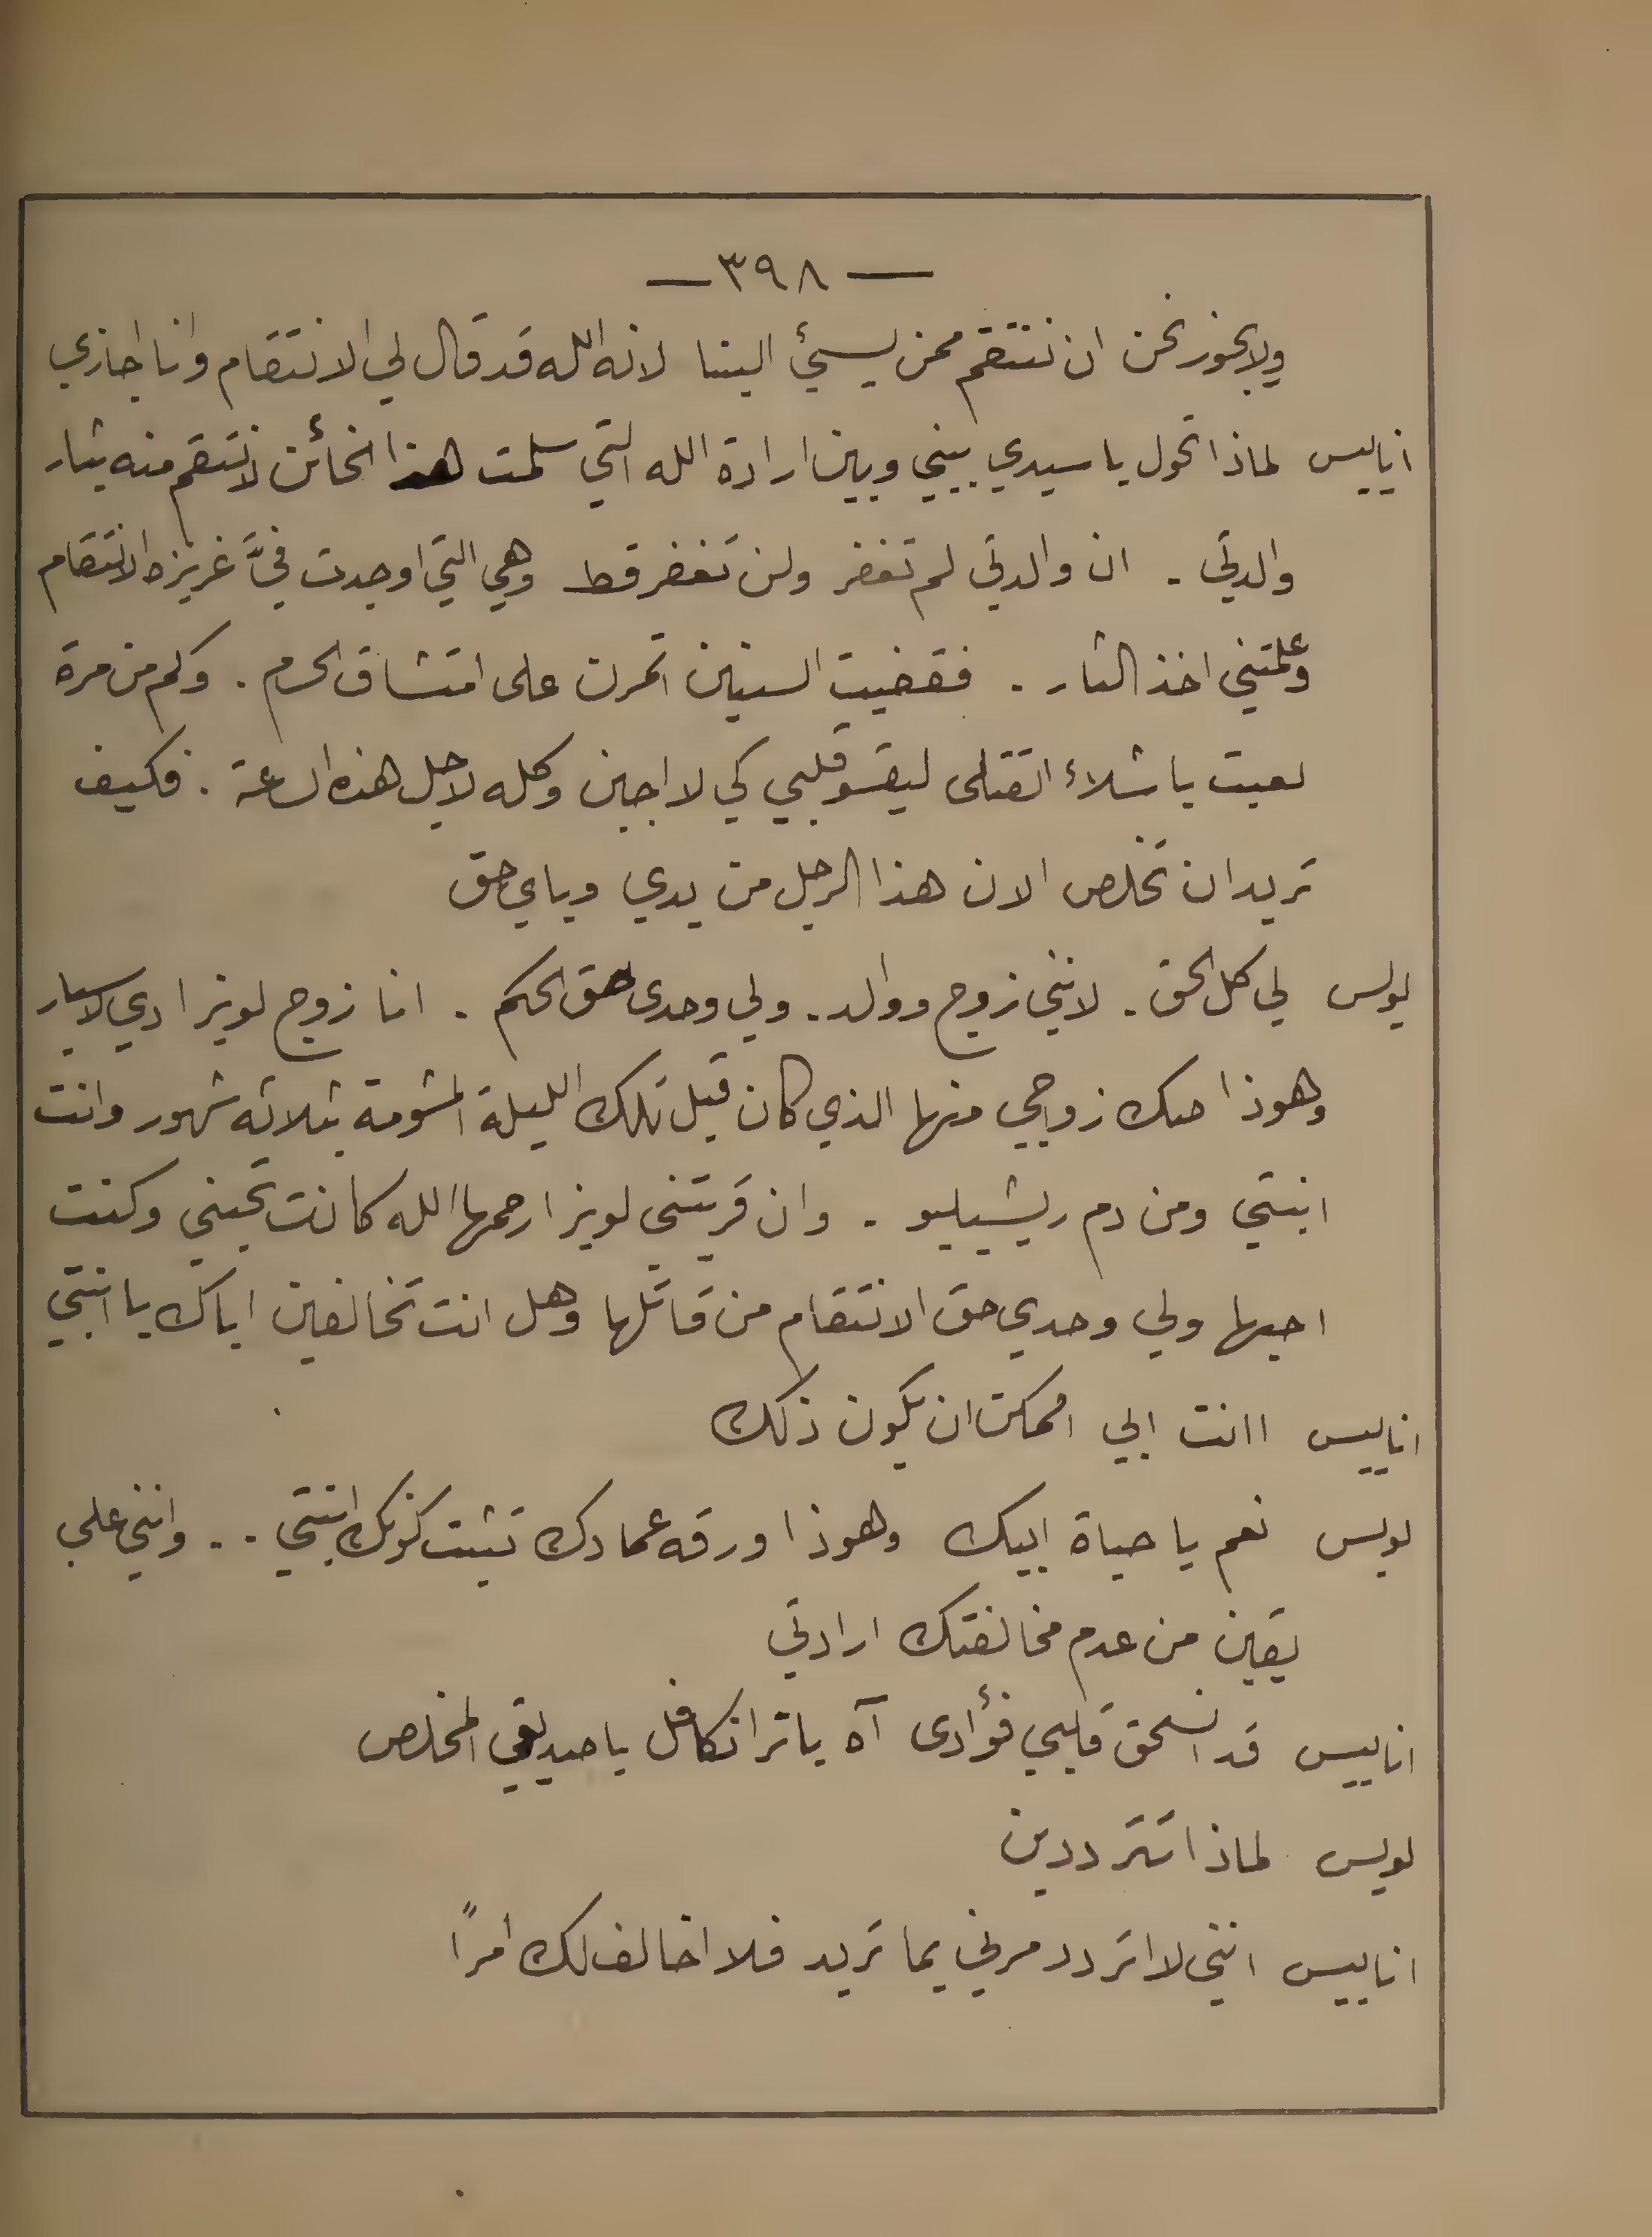 — ٣٩٨ —
ولا يجوز نحن ان ننتقم ممن يسيئ الينا لانه الله قد قال لي الانتقام وانا اجازي
اناييس لماذا تحول يا سيدي بيني وبين ارادة الله التي سلمت هذا الخائن لانتقم منه بثار
والدتي . ان والدتي لم تغفر ولن تغفر قط وهي التي اوجدت فيَّ غريزة الانتقام
وعلمتني اخذ الثار . فقضيت السنين اتمرن على امتشاق الحسام . وكم من مرة
لعبت باشلاء القتلى ليقسو قلبي كي لا اجبن وكله لاجل هذه الساعة . فكيف
تريد ان تخلص الان هذا الرجل من يدي وباي حق
لويس لي كل الحق . لانني زوج ووالد . ولي وحدى حق الحكم . انا زوج لويزا دي لاسبار
وهوذا صك زواجي منها الذي كان قبل تلك الليلة المشومة بثلاثه شهور وانت
ابنتي ومن دم ريشيليو . وان قرينتي لويزا رحمها الله كانت تحبني وكنت
احبها ولي وحدي حق الانتقام من قاتلها وهل انت تخالفين اباك يا ابنتي
اناييس اانت ابي اممكن ان يكون ذلك
لويس نعم يا حياة ابيك وهوذا ورقه عمادك تثبت كونك ابنتي .. وانني علي
يقين من عدم مخالفتك ارادتي
اناييس قد انسحق قلبي فؤادى آه يا ترانكافل يا صديقي المخلص
لويس لماذا تترددين
اناييس انني لا اتردد مرني بما تريد فلا اخالف لك امرًا